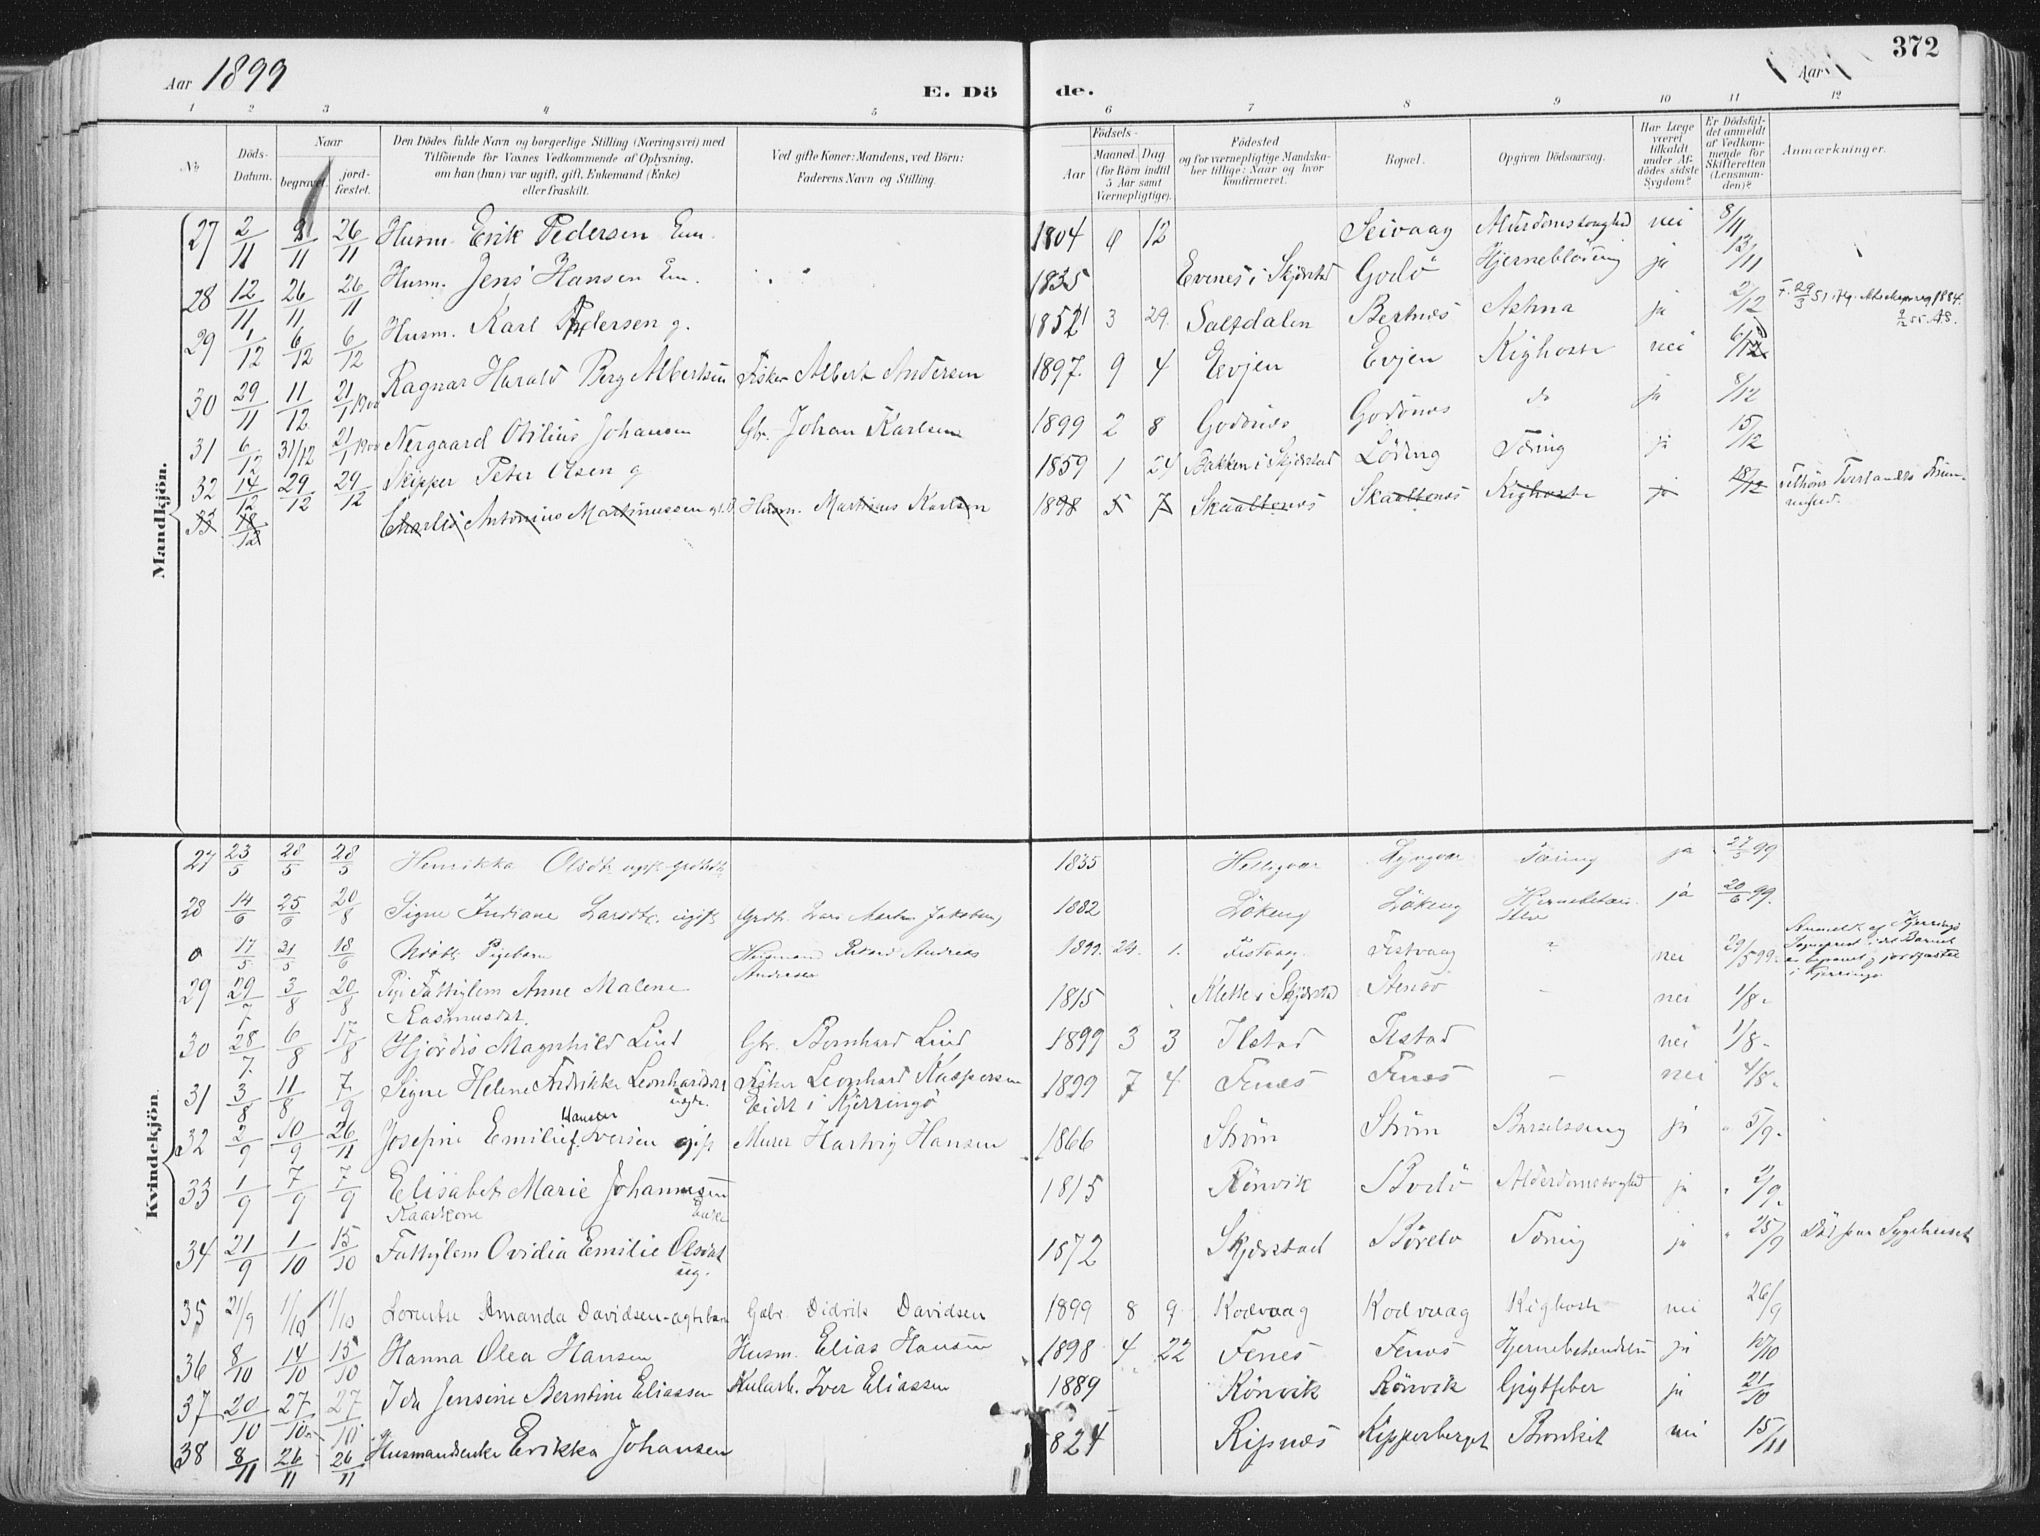 Aar 1899
E. Dö de.
Aar
372
1 2 3 4 5 6 7 8 9 10 11 12
No
Döds-Datum.
Naar
begravet.
jord-fæstet.
Den Dödes fulde Navn og borgerlige Stilling (Næringsvei) med
Tilföiende for Voxnes Vedkommende af Oplysning,
om han (hun) var ugift, gift, Enkemand (Enke)
eller fraskilt.
Ved gifte Koner: Mandens, ved Börn:
Faderens Navn og Stilling.
Födsels-
Aar
Maaned. Dag
(for Börn indtil
5 Aar samt
Værnepligtige).
Födested
og for værnepligtige Mandska-
ber tillige: Naar og hvor
konfirmeret.
Bopæl.
Opgiven Dödsaarsag.
Har Læge
været
tilkaldt
under Af-
dödes sidste
Sygdom?
Er Dödsfal-
det anmeldt
af Vedkom-
mende for
Skifteretten
(Lensman-
den)?
Anmærkninger.
Mandkjön.
27 2/11 9/11 26/11 Husm. Erik Pedersen Em. 1804 6 12 Seivaag Alderdomssvaghed nei 8/11
28 12/11 26/11 26/11 Husm. Jens Hansen Em. 1835 Evenes i Skjerstad Godö Hjerneblödning ja 13/11
29 1/12 6/12 6/12 Husm. Karl Pedersen g. 1852 3 29 Saltdalen Bertnes Astma ja 2/12
30 29/11 11/12 21/1 1900 Ragnar Harald Berg Albertsen Fisker Albert Andersen 1897 9 4 Evjen Evjen Kighoste nei 6/12
31 6/12 31/12 21/1 1900 Nergaard Otilius Johansen Gbr. Johan Karlsen 1899 2 8 Godönes Godönes do ja 8/12
32 14/12 29/12 29/12 Skipper Peter Olsen g 1859 1 24 Bakken i Skjerstad Löding Tæring ja 15/12
33 18/12 Charles Antonius Martinussen Husm. Martinus Karlsen 1898 5 7 Skaaltenes Skaaltenes Kighoste ja 18/12
Kvindekjön.
27 23/5 28/5 28/5 Henrikka Olsdtr. 1835 Helligvær Lyngvær Tæring ja 27/5 99
28 14/6 25/6 20/8 Signe Indiane Larsdtr. ugift Grdb. Lars Martin Jakobsen 1882 Lökeng Lökeng ja 20/6 99.
0 17/5 21/5 18/6 Udöbt Pigebarn Husmand Rikard Andreas
Andersen 1899 24. 1. Festvaag Festvaag nei 29/5 99.
Anmeldt af Kjerringö
Sogneprest idet Barnet
er begravet og jordfæstet
i Kjerringö.
29 29/7 3/8 20/8 Pige Fattiglem Anne Malene
Rasmusdat. 1815 Klette i Skjerstad Stensö nei 1/8
30 28/7 6/8 17/8 Hjördis Magnhild Lind Gbr. Bernhard Lind 1899 3 3 Ilstad Ilstad nei 1/8
31 3/8 11/8 7/9 Signe Helene Fredrikke Leonhardsdat Fisker Leonhard Kaspersen
Eidet i Kjerringö 1899 7 4 Fenes Fenes nei 4/8
32 2/9 10/9 26/11 Josefine Emilie Hansen f. Iversen gift Murer Hartvig Hansen 1866 Ström Ström Barselseng ja 5/9
33 1/9 7/9 7/9 Elisabet Marie Johannesen
Kaarkone Enke 1815 Rönvik Bodö Alderdomssvaghed ja 2/9
34 21/9 1/10 15/10 Fattiglem Ovidia Emilie Olsdat
ug. 1872 Skjerstad Börelv Tæring ja 25/9 Död paa Sygehuset
35 21/9 1/10 1/10 Lorentse Amanda Davidsen Gbr. Didrik Davidsen 1899 8 9 Kodvaag Kodvaag Kighoste nei 26/9
36 8/10 14/10 15/10 Hanna Olea Hansen Husm. Elias Hansen 1898 4 22 Fenes Fenes Hjernebetændelse ja 10/10
37 20/10 27/10 27/10 Ida Jensine Berntine Eliassen Kularb. Iver Eliassen 1889 Rönvik Rönvik Gigtfeber ja 21/10
38 8/11 26/11 26/11 Husmandsenke Erikka Johansen 1824 Ripnes Kipperberget Bronkit nei 15/11